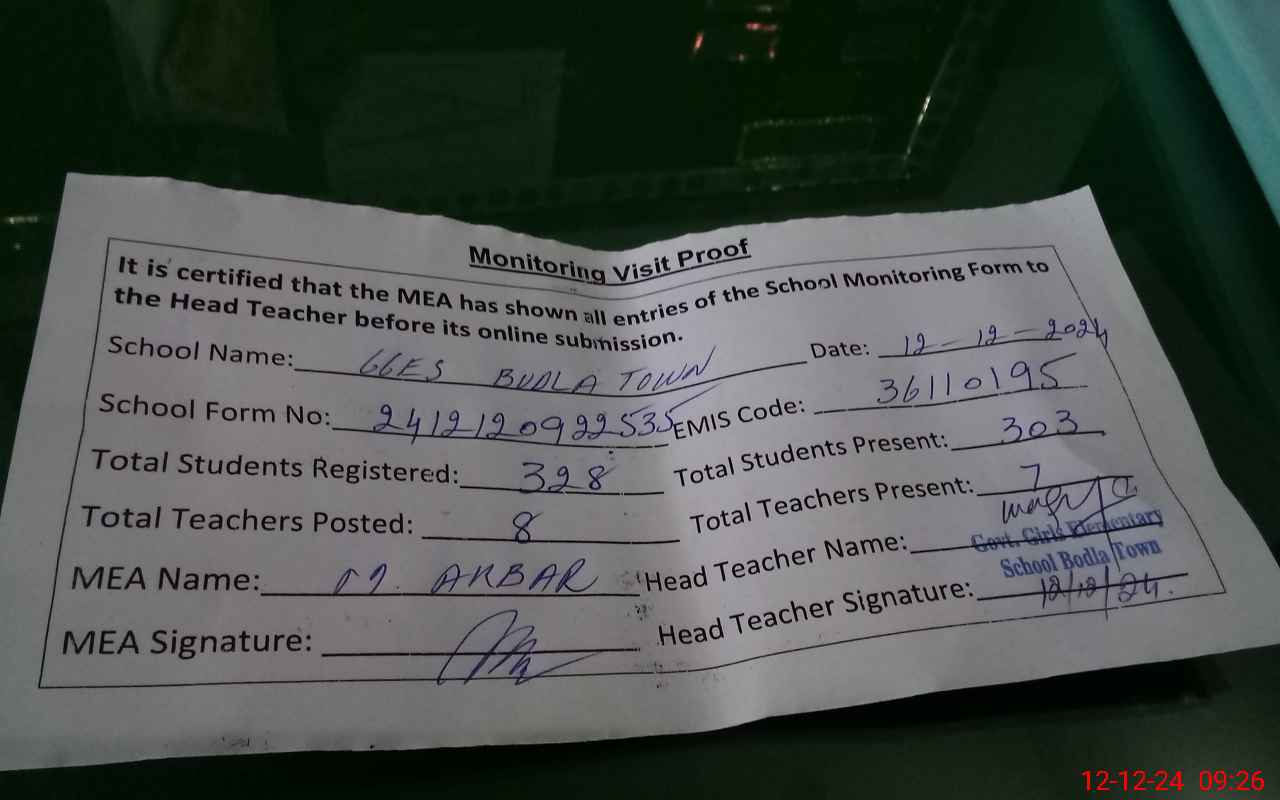 Monitoring Visit Proof
It is certified that the MEA has shown all entries of the School Monitoring Form to
the Head Teacher before its online submission.
School Name: GGES BUDLA TOWN Date: 12-12-2024
School Form No: 241212092253​5 EMIS Code: 36110195
Total Students Registered: 328 Total Students Present: 303
Total Teachers Posted: 8 Total Teachers Present: 7
MEA Name: M. AKBAR Head Teacher Name:
Govt. Girls Elementary
School Bodla Town
MEA Signature: Head Teacher Signature: 12/12/24.
12-12-24 09:26